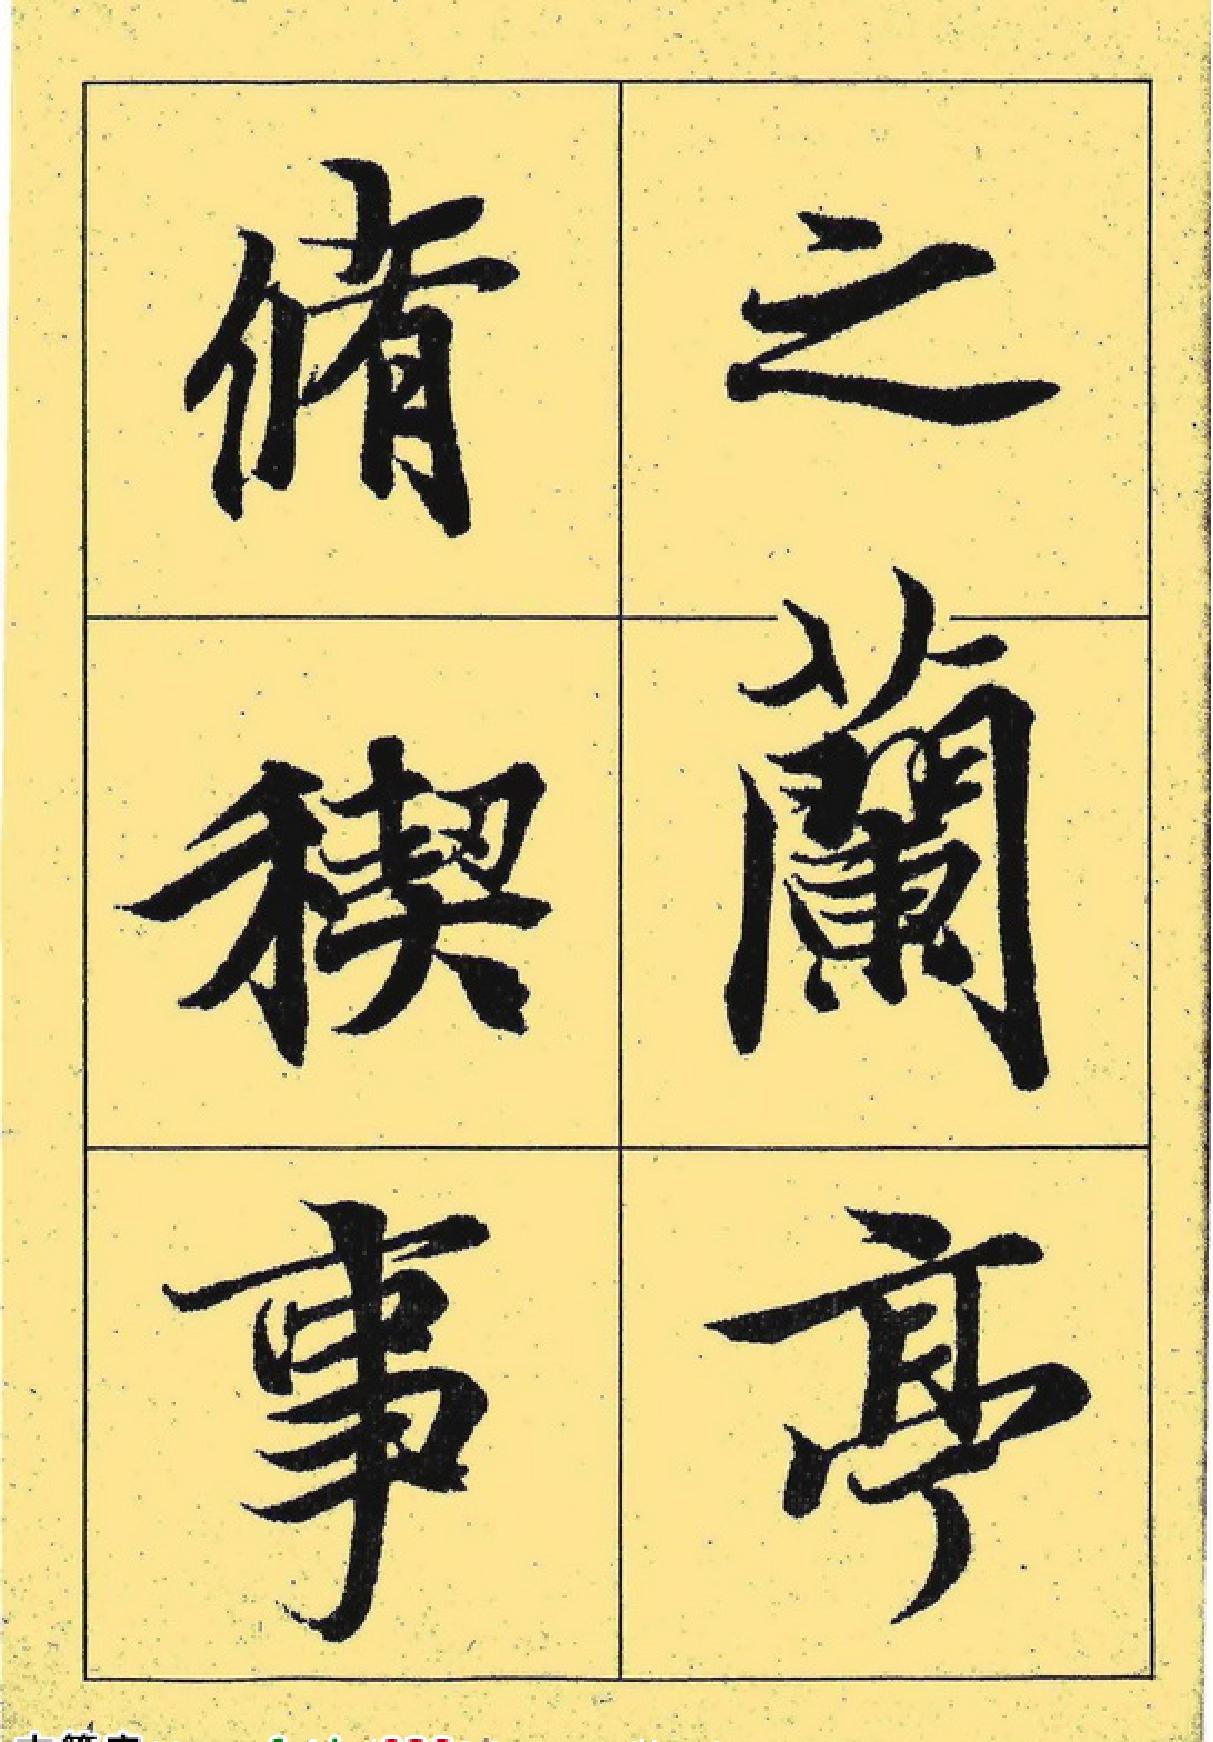 之蘭亭
脩稧事